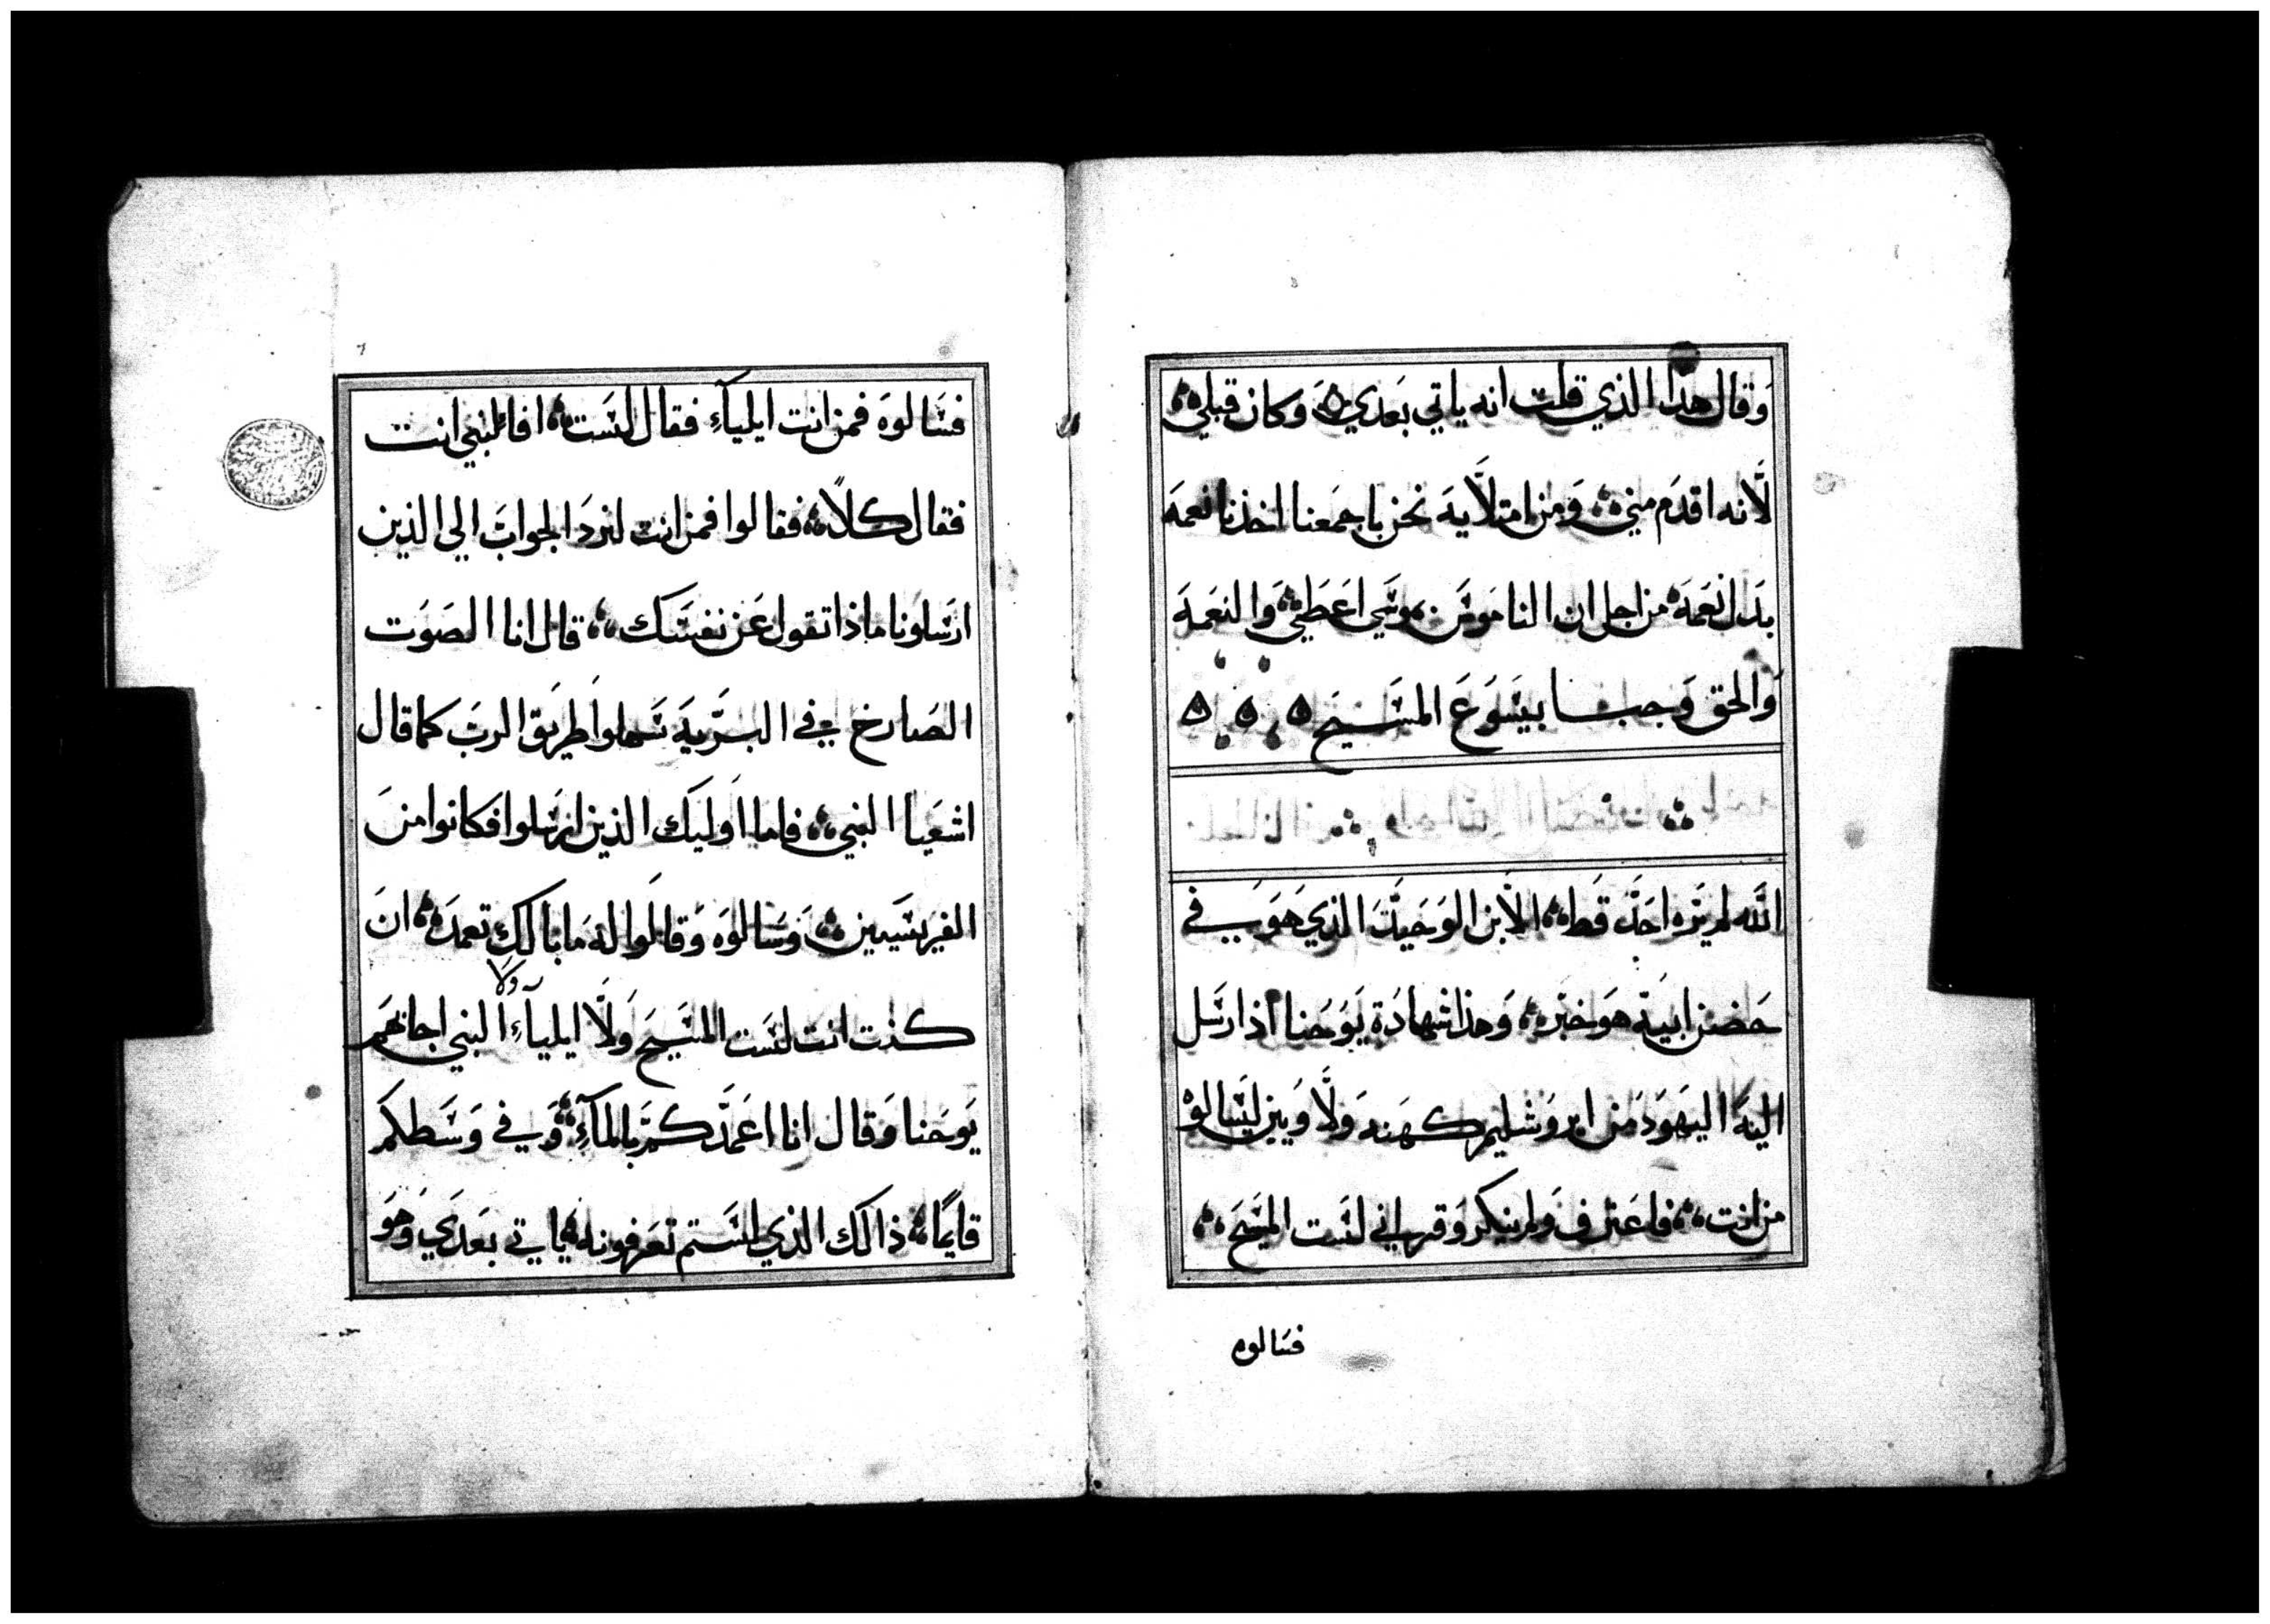 وقال هذا الذي قلت انه ياتي بعدي وكان قبلي
لانه اقدم مني ومن امتلايه نحن باجمعنا اخذنا نعمة
بدل نعمة من اجل ان الناموس بموسي اعطي والنعمة
والحق وجبا بيسوع المسيح
الله لم يره احد قط الابن الوحيد الذي هو في
حضن ابيه هو خبر وهذا شهادة يوحنا اذ ارسل
اليه اليهود من ايروشليم كهنة ولاويين ليسالوه
من انت فاعترف ولم ينكر وقر اني لست المسيح
فسالوه
فسالوه فمن انت ايلياء فقال لست افالنبي انت
فقال كلا فقالوا فمن انت لنرد الجواب الي الذين
ارسلونا ماذا تقول عن نفسك قال انا الصوت
الصارخ في البرية سهلوا طريق الرب كما قال
اشعيا النبي فاما اوليك الذين ارسلوا فكانوا من
الفريسيين وسالوه وقالوا له ما بالك تعمد ان
كنت انت لست المسيح ولا ايلياء ولا النبي اجابهم
يوحنا وقال انا اعمدكم بالماء وفي وسطكم
قايما ذالك الذي لستم تعرفونه ياتي بعدي وهو